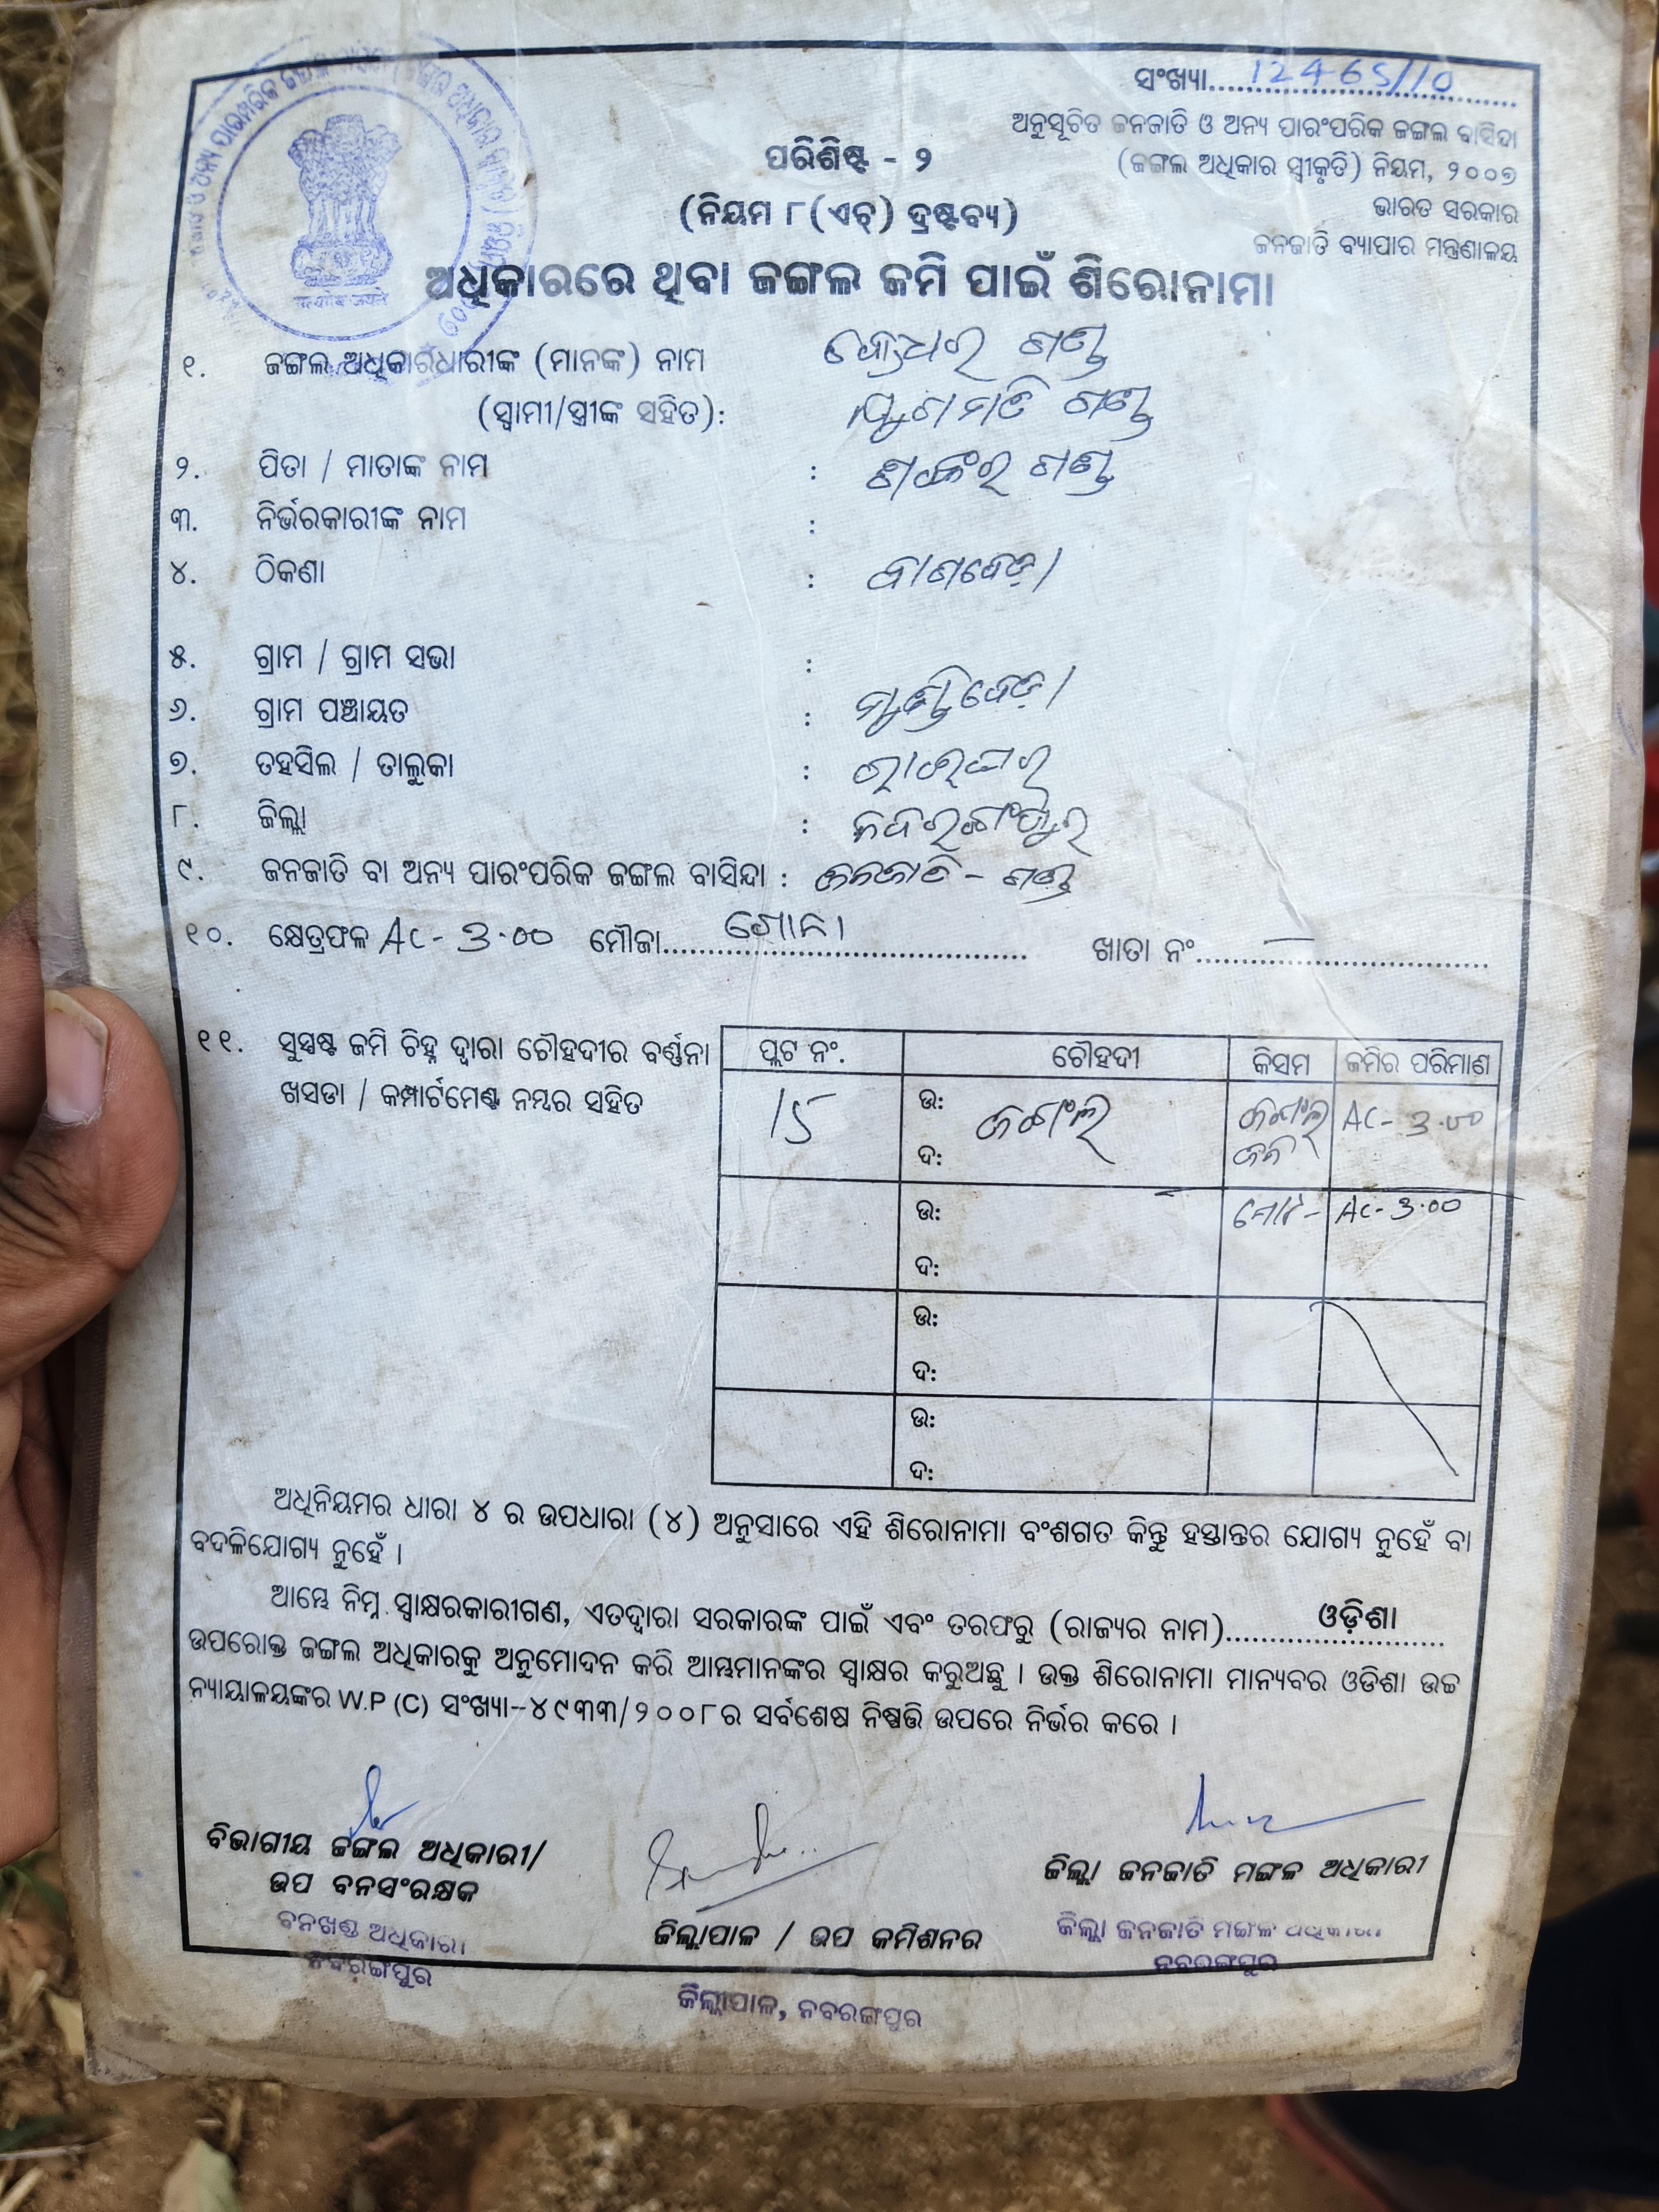 ସଂଖ୍ୟା 12465/10
ଅନୁସୂଚିତ ଜନଜାତି ଓ ଅନ୍ୟ ପାରଂପରିକ ଜଙ୍ଗଲ ବାସିନ୍ଦା
(ଜଙ୍ଗଲ ଅଧିକାର ସ୍ୱୀକୃତି) ନିୟମ, ୨୦୦୭
ଭାରତ ସରକାର
ଜନଜାତି ବ୍ୟାପାର ମନ୍ତ୍ରଣାଳୟ
ପରିଶିଷ୍ଟ - ୨
(ନିୟମ ୮(ଏଚ୍) ଦ୍ରଷ୍ଟବ୍ୟ)
ଅଧିକାରରେ ଥିବା ଜଙ୍ଗଲ ଜମି ପାଇଁ ଶିରୋନାମା
୧. ଜଙ୍ଗଲ ଅଧିକାରଧାରୀଙ୍କ (ମାନଙ୍କ) ନାମ ଗଣ୍ଡ
(ସ୍ୱାମୀ/ସ୍ତ୍ରୀଙ୍କ ସହିତ): ଗଣ୍ଡ
୨. ପିତା / ମାତାଙ୍କ ନାମ : ଗଣ୍ଡ
୩. ନିର୍ଭରକାରୀଙ୍କ ନାମ :
୪. ଠିକଣା :
୫. ଗ୍ରାମ / ଗ୍ରାମ ସଭା :
୬. ଗ୍ରାମ ପଞ୍ଚାୟତ :
୭. ତହସିଲ / ତାଲୁକା : ରାଇଘର
୮. ଜିଲ୍ଲା : ନବରଙ୍ଗପୁର
୯. ଜନଜାତି ବା ଅନ୍ୟ ପାରଂପରିକ ଜଙ୍ଗଲ ବାସିନ୍ଦା : ଜନଜାତି - ଗଣ୍ଡ
୧୦. କ୍ଷେତ୍ରଫଳ AC - 3.00 ମୌଜା ଖାତା ନଂ
୧୧. ସୁସ୍ପଷ୍ଟ ଜମି ଚିହ୍ନ ଦ୍ୱାରା ଚୌହଦୀର ବର୍ଣ୍ଣନା
ଖସଡା / କମ୍ପାର୍ଟମେଣ୍ଟ ନମ୍ବର ସହିତ
ପ୍ଲଟ ନଂ. ଚୌହଦୀ କିସମ ଜମିର ପରିମାଣ
15 ଉ: ଜଙ୍ଗଲ ଜଙ୍ଗଲ AC - 3.00
ଦ: ଜମି
ଉ: ମୋଟ - AC - 3.00
ଦ:
ଉ:
ଦ:
ଉ:
ଦ:
ଅଧିନିୟମର ଧାରା ୪ ର ଉପଧାରା (୪) ଅନୁସାରେ ଏହି ଶିରୋନାମା ବଂଶଗତ କିନ୍ତୁ ହସ୍ତାନ୍ତର ଯୋଗ୍ୟ ନୁହେଁ ବା
ବଦଳିଯୋଗ୍ୟ ନୁହେଁ ।
ଆମ୍ଭେ ନିମ୍ନ ସ୍ୱାକ୍ଷରକାରୀଗଣ, ଏତଦ୍ୱାରା ସରକାରଙ୍କ ପାଇଁ ଏବଂ ତରଫରୁ (ରାଜ୍ୟର ନାମ) ଓଡ଼ିଶା
ଉପରୋକ୍ତ ଜଙ୍ଗଲ ଅଧିକାରକୁ ଅନୁମୋଦନ କରି ଆମ୍ଭମାନଙ୍କର ସ୍ୱାକ୍ଷର କରୁଅଛୁ । ଉକ୍ତ ଶିରୋନାମା ମାନ୍ୟବର ଓଡିଶା ଉଚ୍ଚ
ନ୍ୟାୟାଳୟଙ୍କର W.P (C) ସଂଖ୍ୟା-୪୯୩୩/୨୦୦୮ର ସର୍ବଶେଷ ନିଷ୍ପତ୍ତି ଉପରେ ନିର୍ଭର କରେ ।
ବିଭାଗୀୟ ଜଙ୍ଗଲ ଅଧିକାରୀ/
ଉପ ବନସଂରକ୍ଷକ
ବନଖଣ୍ଡ ଅଧିକାରୀ
ନବରଙ୍ଗପୁର
ଜିଲ୍ଲାପାଳ / ଉପ କମିଶନର
ଜିଲ୍ଲାପାଳ, ନବରଙ୍ଗପୁର
ଜିଲ୍ଲା ଜନଜାତି ମଙ୍ଗଳ ଅଧିକାରୀ
ଜିଲ୍ଲା ଜନଜାତି ମଙ୍ଗଳ ଅଧିକାରୀ
ନବରଙ୍ଗପୁର